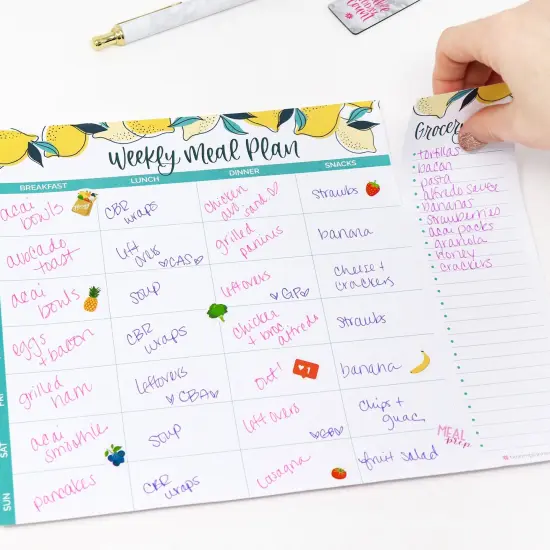 count
Weekly Meal Plan
BREAKFAST LUNCH DINNER SNACKS
acai bowls
CBR wraps
chicken avo sand.
strawbs
avocado toast
left overs CAS
grilled paninis
banana
acai bowls
soup
leftovers GP
cheese + crackers
eggs + bacon
CBR wraps
Chicken + broc alfredo
strawbs
FRI
grilled ham
leftovers CBA
out!
1
banana
SAT
acai smoothie
soup
leftovers GP
chips + guac
SUN
pancakes
CBR wraps
lasagna
fruit salad
Grocery
tortillas
bacon
pasta
alfredo sauce
bananas
strawberries
acai packs
granola
honey
crackers
MEAL
prep